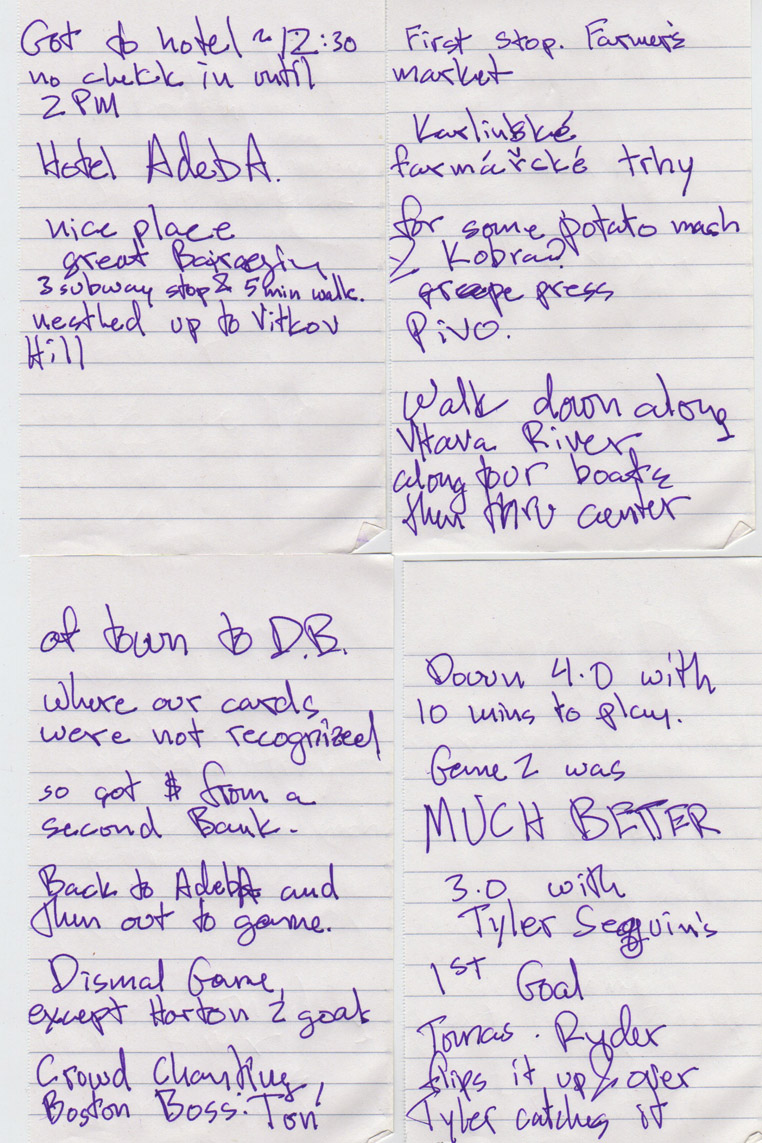 Got to hotel ~ 12:30
no check in until
2 PM
Hotel AdebA.
nice place
great
3 subway stops & 5 min walk.
nestled up to Vitkov
Hill
First stop. Farmer's
market
Karlinské
farmářcké trhy
for some potato mash
2
grape press
Pivo.
Walk down along
Vltava River
along tour boats
then thru center
of town to D.B.
where our cards
were not recognized
so got $ from a
second Bank.
Back to AdebA and
then out to game.
Dismal Game,
except Horton 2 goals
Crowd Chanting,
Boston Boss. Ton'
Down 4.0 with
10 mins to play.
Game 2 was
MUCH BETTER
3.0 with
Tyler Seguin's
1st Goal
Tomas. Ryder
flips it up & over
Tyler catches it